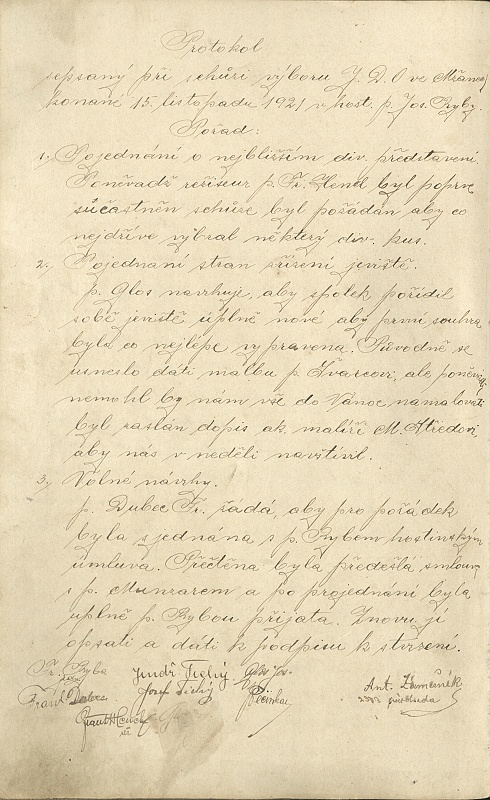 Protokol
sepsaný při schůzi výboru J. D. O ve Mřanov
konané 15. listopadu 1921 v host. p. Jos. Ryby.
Pořad:
1., Pojednání o nejbližším div. představení.
Poněvadž režiseur p. Fr. Hend byl poprve
súčastněn schůze byl požádán aby co
nejdříve vybral některý div. kus.
2., Pojednaní stran zřízení jeviště.
p. Glos navrhuje, aby spolek pořídil
sobě jeviště úplně nové aby první souhra
byla co nejlépe vypravena. Původně se
usneslo dáti malbu p. Švarcovi, ale poněvadž
nemohl by nám vše do Vánoc namalovati
byl zaslán dopis ak. malíři M. Středovi
aby nás v neděli navštívil.
3., Volné návrhy.
p. Dubec Fr. žádá, aby pro pořádek
byla sjednána s p. Rybou hostinským
úmluva. Přečtěna byla předešlá smlouva
s p. Munzarem a po projednání byla
úplně p. Rybou přijata. Znovu ji
opsati a dáti k podpisu k stvrzení.
Fr. Ryba Jindř Tichý Glos Jos.
Frant. Dubec Josef Tichý Ant. Zámečník
předseda